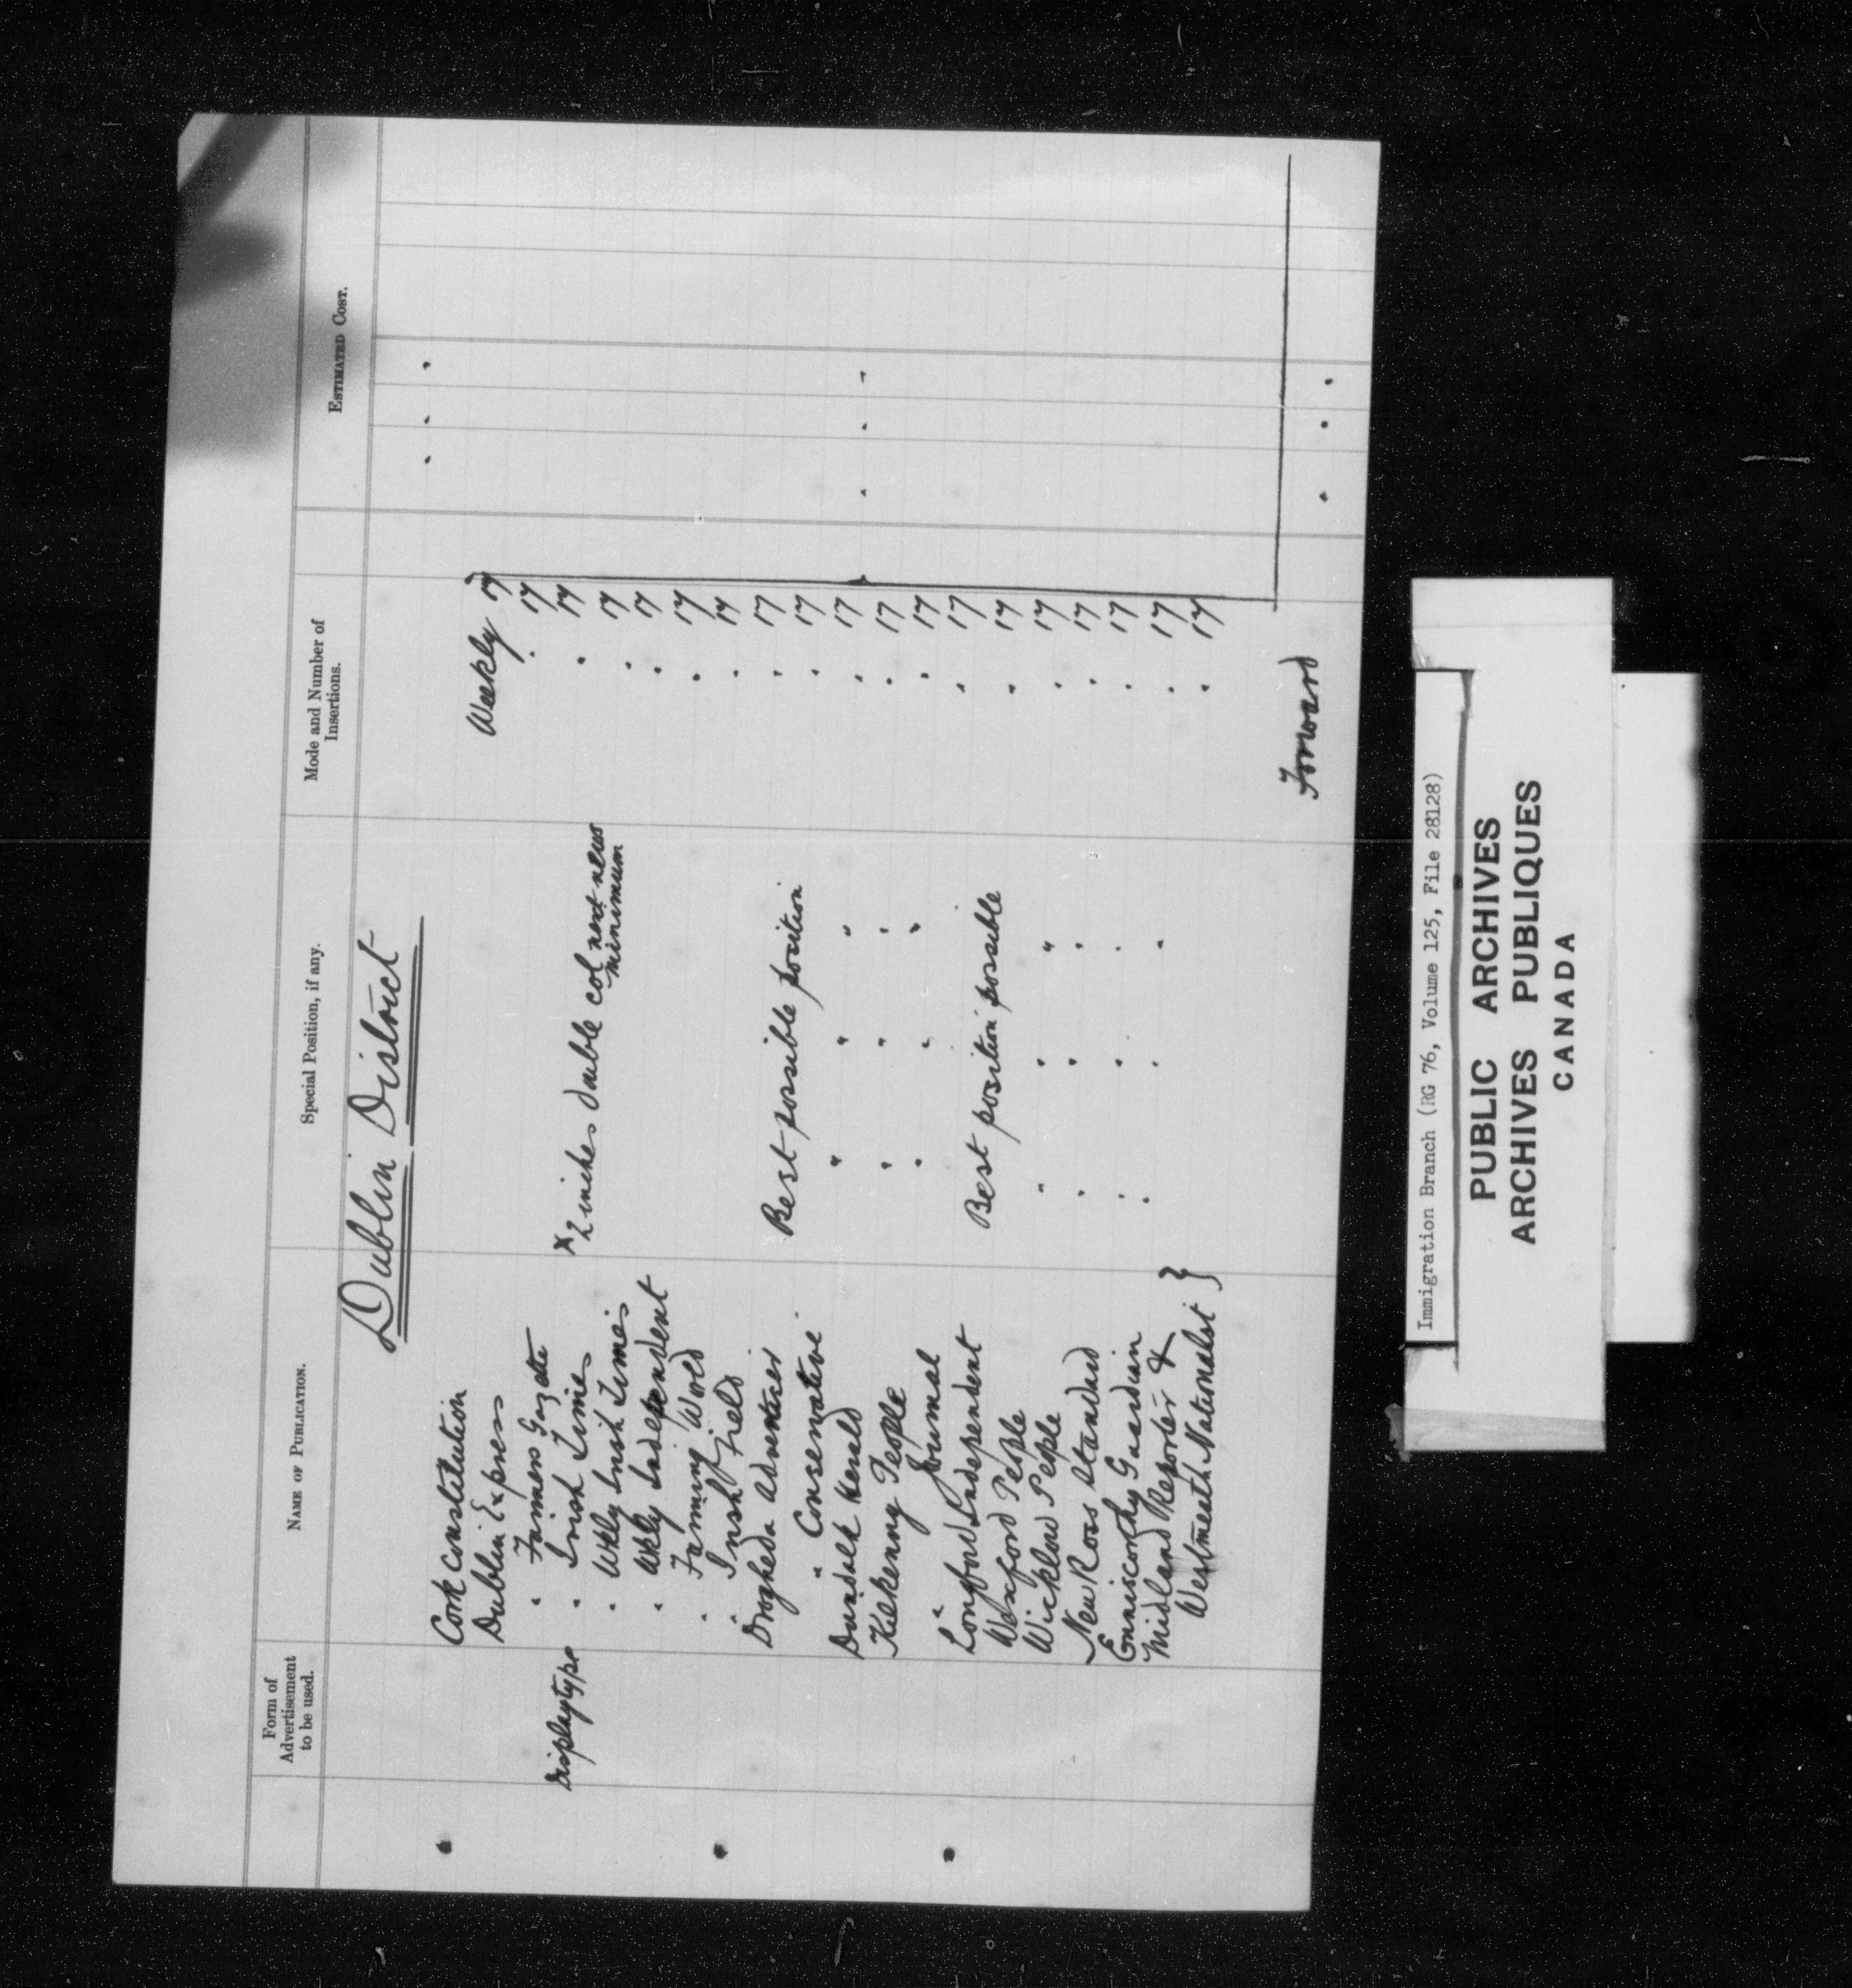 Form of Advertisement to be used.
NAME OF PUBLICATION.
Special Position, if any.
Mode and Number of Insertions.
ESTIMATED COST.
Dublin District
Cork Constitution Weekly 17
Dublin Express " 17
" Farmers Gazette " 17
Display type " Irish Times x 2 inches double col next news minimum " 17
" Wkly Irish Times " 17
" Wkly Independent " 17
" Farming World " 17
" Irish Field " 17
Drogheda Advertiser Best possible position " 17
" Conservative " " " " 17
Dundalk Herald " " " " 17
Kilkenny People " " " " 17
" Journal " 17
Longford Independent Best position possible " 17
Wexford People " 17
Wicklow People " " " " 17
New Ross Standard " " " " 17
Enniscorthy Guardian " " " " 17
Midland Reporter & } " " " " 17
Westmeath Nationalist
Forward
Immigration Branch (RG 76, Volume 125, File 28128)
PUBLIC ARCHIVES
ARCHIVES PUBLIQUES
CANADA